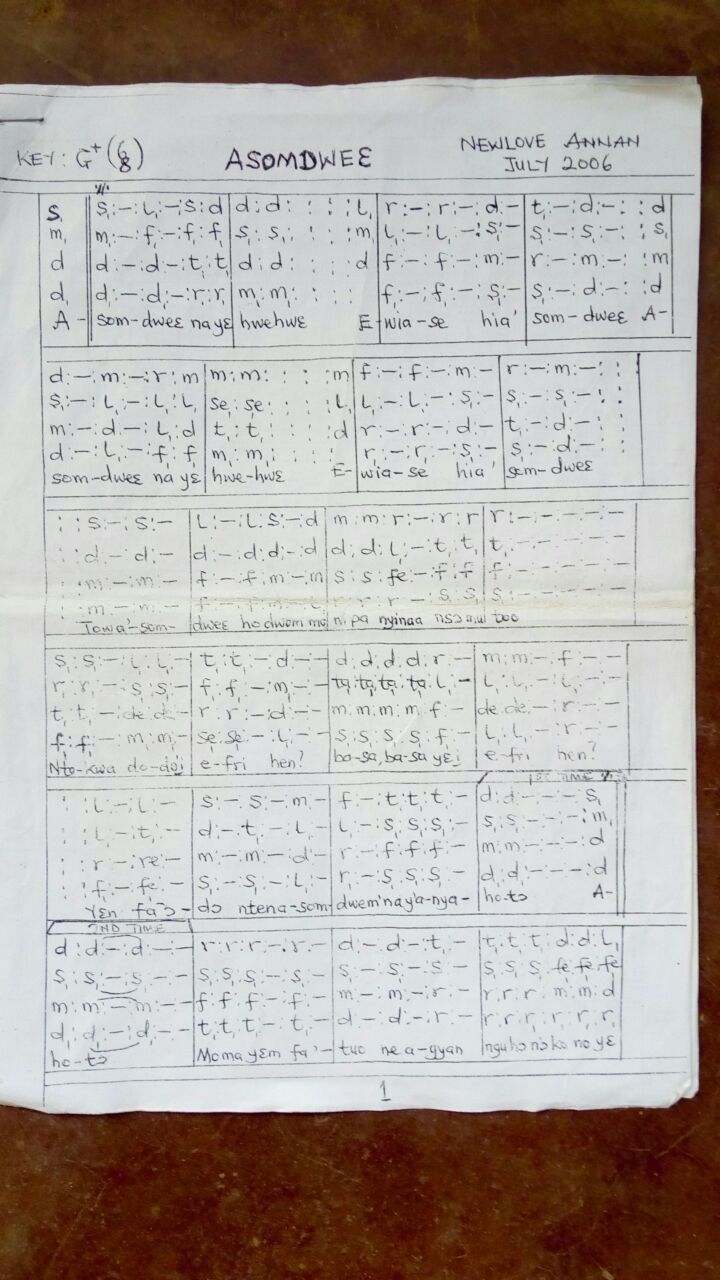 KEY: G⁺ (6/8) ASOMDWEƐ NEWLOVE ANNAN
JULY 2006
S, | S,:-:L,:-:S,:d | d:d: : : :L, | r:-:r:-:d:- | t,:-:d:-: :d
m, | m,:-:f,:-:f,:f, | S,:S,: : : :m, | L,:-:L,:-:S,:- | S,:-:S,:-: :S,
d | d:-:d:-:t,:t, | d:d: : : :d | f:-:f:-:m:- | r:-:m:-: :m
d, | d,:-:d,:-:r,:r, | m,:m,: : : : | f,:-:f,:-:S,:- | S,:-:d:-: :d
A- som-dweɛ na yɛ hwehwɛ E-wia-se hia' som-dweɛ A-
d:-:m:-:r:m | m:m: : : :m | f:-:f:-:m:- | r:-:m:-: :
S,:-:L,:-:L,:L, | se,:se,: : : :L, | L,:-:L,:-:S,:- | S,:-:S,:-: :
m:-:d:-:L,:d | t,:t,: : : :d | r:-:r:-:d:- | t,:-:d:-: :
d:-:L,:-:f,:f, | m,:m,: : : : | r,:-:r,:-:S,:- | S,:-:d:-: :
som-dweɛ na yɛ hwe-hwɛ E-wia-se hia' som-dweɛ
: :S:-:S:- | L:-:L:S:-:d | m:m:r:-:r:r | r:-:-:-:-:-
: :d:-:d:- | d:-:d:d:-:d | d:d:L,:-:t,:t, | t,:-:-:-:-:-
: :m:-:m:- | f:-:f:m:-:m | S:S:fe:-:f:f | f:-:-:-:-:-
: :m:-:m:- | r:r:r:-:S,:S, | S,:-:-:-:-:-
dweɛ ho dwom ma ni pa nyinaa
S,:S,:-:L,:L,:- | t,:t,:-:d:-:- | d:d:d:d:r:- | m:m:-:f:-:-
r,:r,:-:S,:S,:- | f,:f,:-:m,:-:- | ta,:ta,:ta,:ta,:L,:- | L,:L,:-:L,:-:-
t,:t,:-:de:de:- | r:r:-:d:-:- | m:m:m:m:f:- | de:de:-:r:-:-
f,:f,:-:m,:m,:- | se,:se,:-:L,:-:- | S,:S,:S,:S,:f,:- | L,:L,:-:r:-:-
Nto-kwa do-dɔi e-fri hen? ba-sa,ba-sa yɛi e-fri hen?
1ST TIME
: :L,:-:L,:- | S,:-:S,:-:m | f:-:t,:t,:t,:- | d:d:-:-:-:S,
: :L,:-:t,:- | d:-:t,:-:L,:- | L,:-:S,:S,:S,:- | S,:S,:-:-:-:m,
: :r:-:re:- | m:-:m:-:d:- | r:-:f:f:f:- | m:m:-:-:-:d
: :f,:-:fe,:- | S,:-:S,:-:L,:- | r,:-:S,:S,:S,:- | d,:d,:-:-:-:d
Yɛn fa'ɔ- dɔ ntena-som- dwem'na y'a-nya- ho-tɔ A-
2ND TIME
d:d:-:d:-:- | r:r:r:-:r:- | d:-:d:-:t,:- | t,:t,:t,:d:d:L,
S,:S,:-:S,:-:- | S,:S,:S,:-:S,:- | S,:-:S,:-:S,:- | S,:S,:S,:fe,:fe,:fe,
m:m:-:m:-:- | f:f:f:-:f:- | m:-:m:-:r:- | r:r:r:m:m:d
d,:d,:-:d,:-:- | t,:t,:t,:-:t,:- | d:-:d:-:r:- | r,:r,:r,:r,:r,:r,
ho-tɔ Mo ma yɛm fa'- tuo ne a-gyan ngu hɔ n'ɔ ko no yɛ
1